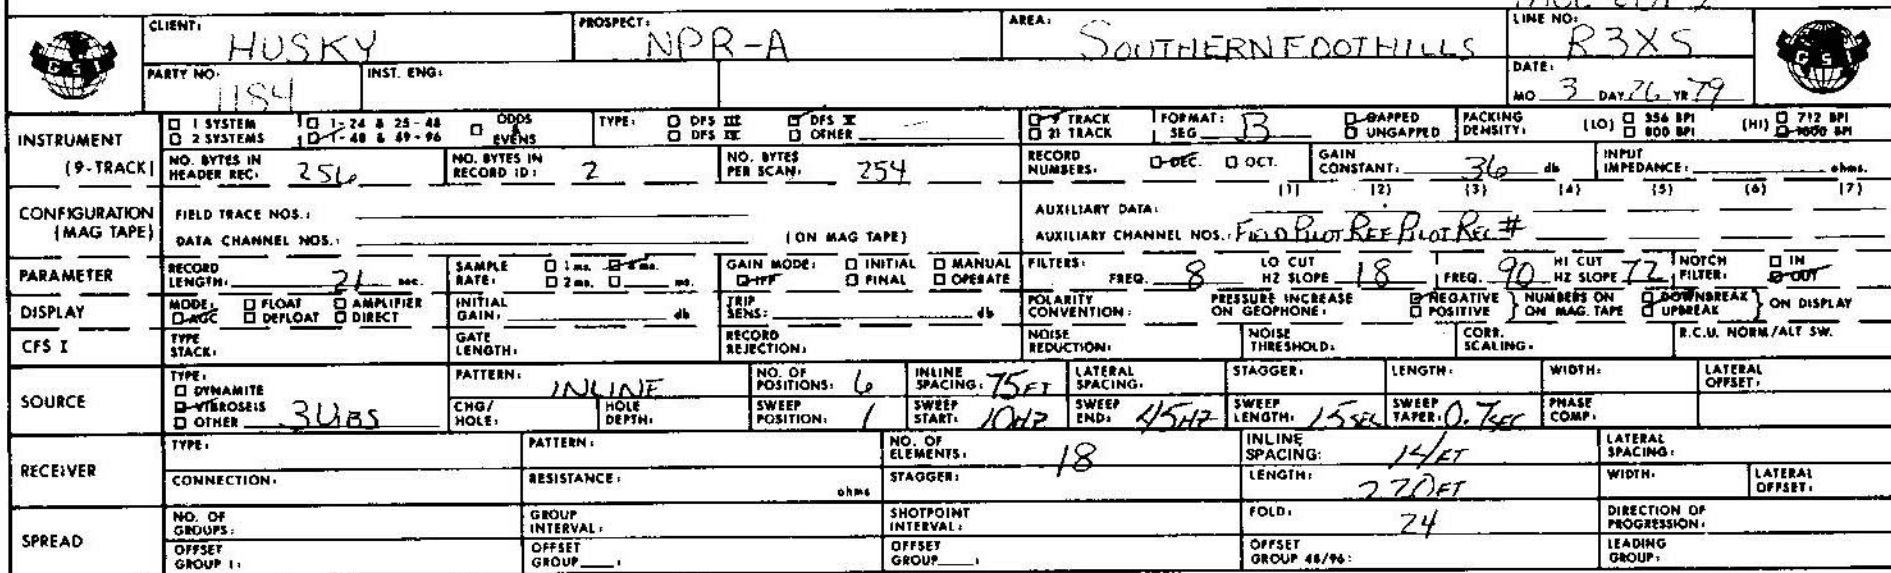 CLIENT: HUSKY PROSPECT: NPR-A AREA: SOUTHERN FOOTHILLS LINE NO: R3XS
GSI GSI
PARTY NO: 1184 INST. ENG: DATE: MO 3 DAY 26 YR 79
INSTRUMENT (9-TRACK)
☐ 1 SYSTEM ☐ 1-24 & 25-48 ☐ ODDS & EVENS TYPE: ☐ DFS III ☑ DFS V ☑ 9 TRACK FORMAT: SEG B ☑ GAPPED PACKING DENSITY: (LO) ☐ 356 BPI (HI) ☐ 712 BPI
☐ 2 SYSTEMS ☑ 1-48 & 49-96 ☐ DFS IV ☐ OTHER ☐ 21 TRACK ☐ UNGAPPED ☐ 800 BPI ☑ 1600 BPI
NO. BYTES IN HEADER REC: 256 NO. BYTES IN RECORD ID: 2 NO. BYTES PER SCAN: 254 RECORD NUMBERS: ☑ DEC. ☐ OCT. GAIN CONSTANT: 36 db INPUT IMPEDANCE: ohms.
(1) (2) (3) (4) (5) (6) (7)
CONFIGURATION (MAG TAPE)
FIELD TRACE NOS.: AUXILIARY DATA:
DATA CHANNEL NOS.: (ON MAG TAPE) AUXILIARY CHANNEL NOS.: FIELD PILOT REF PILOT REC #
PARAMETER
RECORD LENGTH: 21 sec. SAMPLE RATE: ☐ 1 ms. ☑ 4 ms. ☐ 2 ms. ☐ ms. GAIN MODE: ☐ INITIAL ☐ MANUAL ☑ IFP ☐ FINAL ☐ OPERATE FILTERS: FREQ. 8 LO CUT HZ SLOPE 18 FREQ. 90 HI CUT HZ SLOPE 72 NOTCH FILTER: ☐ IN ☑ OUT
DISPLAY
MODE: ☐ FLOAT ☐ AMPLIFIER ☑ AGC ☐ DEFLOAT ☐ DIRECT INITIAL GAIN: db TRIP SENS: db POLARITY CONVENTION: PRESSURE INCREASE ON GEOPHONE: ☑ NEGATIVE ☐ POSITIVE } NUMBERS ON ON MAG. TAPE ☑ DOWNBREAK ☐ UPBREAK } ON DISPLAY
CFS I
TYPE STACK: GATE LENGTH: RECORD REJECTION: NOISE REDUCTION: NOISE THRESHOLD: CORR. SCALING: R.C.U. NORM/ALT SW.
SOURCE
TYPE: ☐ DYNAMITE ☑ VIBROSEIS ☐ OTHER 3 VIBS
PATTERN: INLINE NO. OF POSITIONS: 6 INLINE SPACING: 75 FT LATERAL SPACING: STAGGER: LENGTH: WIDTH: LATERAL OFFSET:
CHG/HOLE: HOLE DEPTH: SWEEP POSITION: 1 SWEEP START: 10HZ SWEEP END: 45HZ SWEEP LENGTH: 15 SEC SWEEP TAPER: 0.7 SEC PHASE COMP:
RECEIVER
TYPE: PATTERN: NO. OF ELEMENTS: 18 INLINE SPACING: 14/FT LATERAL SPACING:
CONNECTION: RESISTANCE: ohms STAGGER: LENGTH: 220 FT WIDTH: LATERAL OFFSET:
SPREAD
NO. OF GROUPS: GROUP INTERVAL: SHOTPOINT INTERVAL: FOLD: 24 DIRECTION OF PROGRESSION:
OFFSET GROUP 1: OFFSET GROUP ____: OFFSET GROUP ____: OFFSET GROUP 48/96: LEADING GROUP: